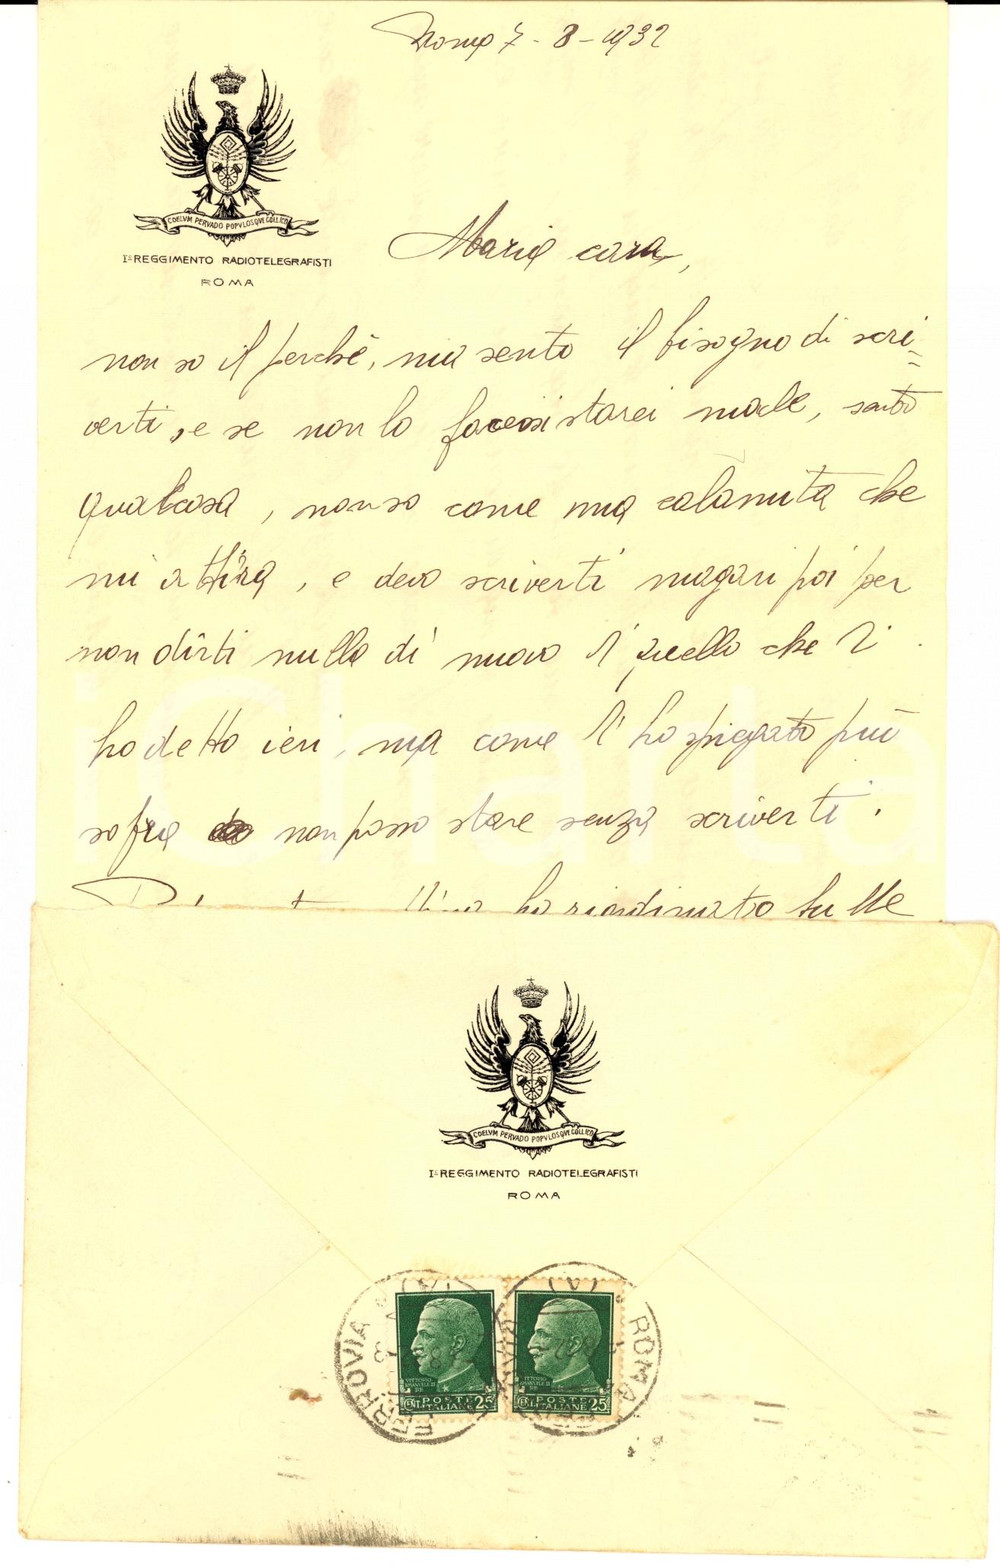 Roma 7-8-1932
COELVM PERVADO POPVLOSQVE COLLIGO
I° REGGIMENTO RADIOTELEGRAFISTI
ROMA
Maria cara,
non so il perchè, ma sento il bisogno di scri=
verti, e se non lo facessi starei male, sento
qualcosa, non so come una calamita che
mi attira, e devo scriverti magari poi per
non dirti nulla di nuovo di quello che ti
ho detto ieri, ma come t'ho spiegato più
sopra non posso stare senza scriverti.
ho riordinato tutte
COELVM PERVADO POPVLOSQVE COLLIGO
I° REGGIMENTO RADIOTELEGRAFISTI
ROMA
VITTORIO
EMANUELE III
RE
POSTE
CENT. ITALIANE 25
VITTORIO
EMANUELE III
RE
POSTE
ITALIANE 25
ROMA
FERROVIA
iCharta